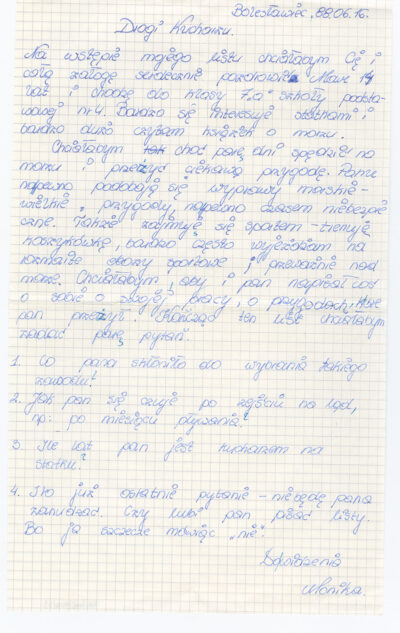 Bolesławiec, 88.06.16.
Drogi Kucharzu.
Na wstępie mojego listu chciałabym Cię i
całą załogę serdecznie pozdrowić. Mam 14
lat i chodzę do klasy 7"a" szkoły podsta-
wowej nr 4. Bardzo się interesuję statkami i
bardzo dużo czytam książek o morzu.
Chciałabym choć parę dni spędzić na
morzu i przeżyć ciekawą przygodę. Panu
napewno podobają się wyprawy morskie-
wielkie przygody, napewno czasem niebezpie
czne. Także zajmuję się sportem - trenuję
koszykówkę, bardzo często wyjeżdżam na
rozmaite obozy sportowe i przeważnie nad
morze. Chciałabym, aby i pan napisał coś
o sobie o swojej pracy, o przygodach, które
pan przeżył. Kończąc ten list chciałabym
zadać parę pytań.
1. Co pana skłoniło do wybrania takiego
zawodu?
2. Jak pan się czuje po zejściu na ląd,
np: po miesięcu pływania?
3. Ile lat pan jest kucharzem na
statku?
4. I to już ostatnie pytanie - nie będę pana
zanudzać. Czy lubi pan pisać listy.
Bo ja szczeże mówiąc "nie".
Dowidzenia
Monika.